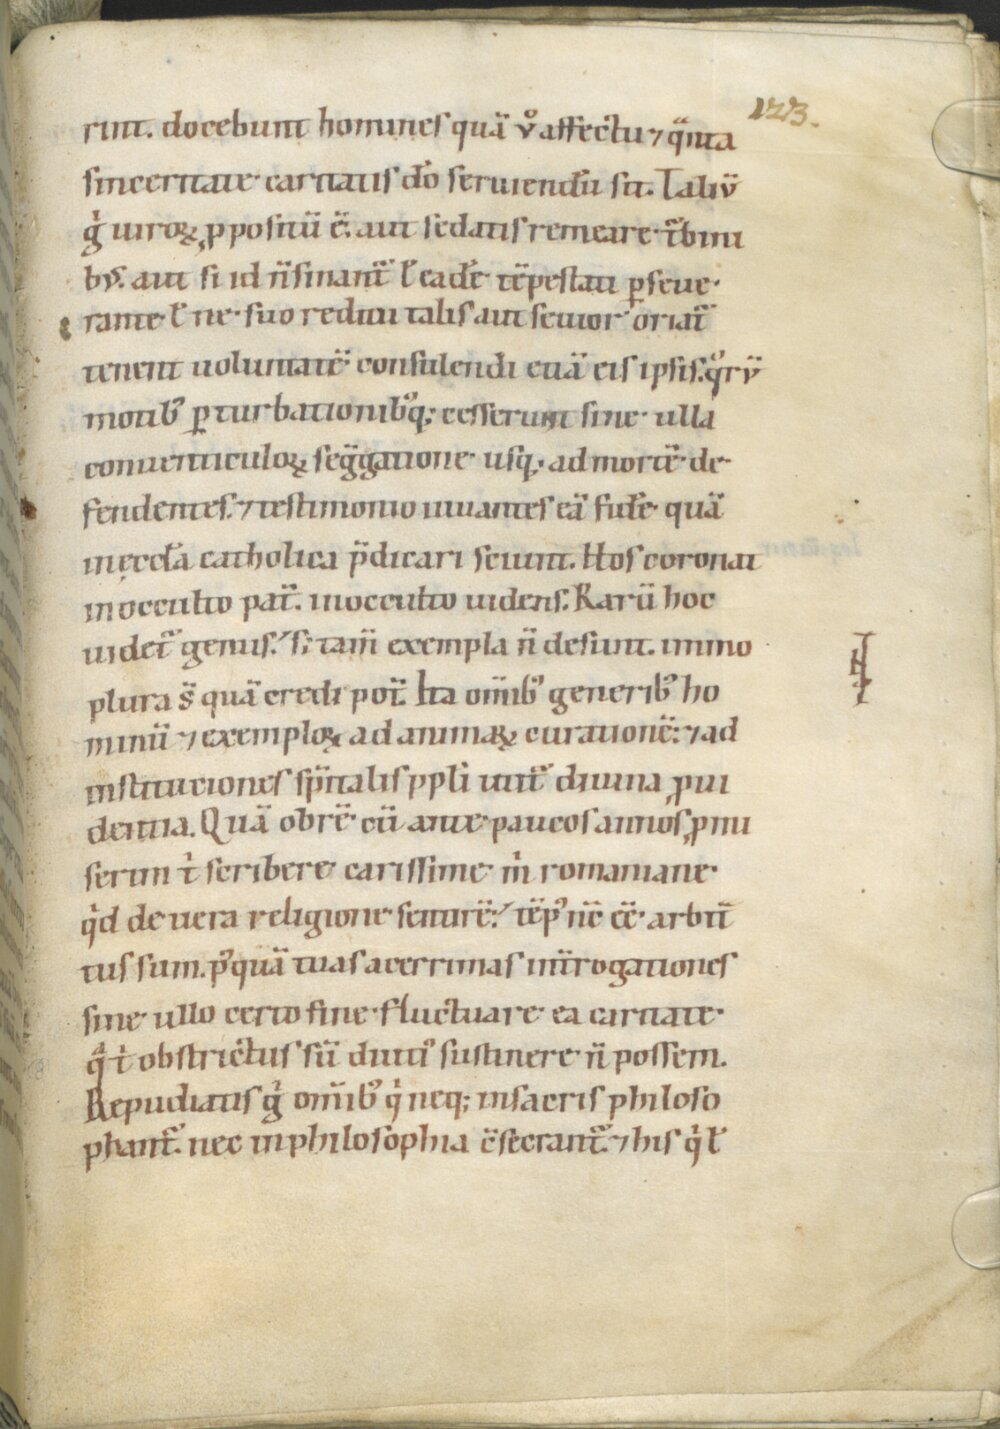 123.
rint. docebunt homines quā v̊ affectu ⁊ qᷓnta
sinceritate caritatis dō seruiendū sit. Taliū
g̊ uiroꝝ ꝓpositū ē. aut sedatis remeare t̄bini
bꝰ. aut si id n̄ sinant᷑ ł eadē tēpestati ꝑseue
rante ł ne suo reditu talis aut seuior oriat᷑
tenent uoluntatē consulendi etiā eis ipsis. qͦrū
motibꝰ ꝑturbationibꝰq; cesserunt sine ulla
conuenticuloꝝ seg̃gatione usq; ad mortē de
fendentes. ⁊ testimonio iuuantes eā fidē quā
in ęccła catholica p̄dicari sciunt. Hos coronat
in occulto pat᷑. in occulto uidens. Rarū hoc
uidet᷑ genus. s; tam̄ exempla n̄ desunt. immo
plura s̄ quā credi pot᷑. Ita om̄ibꝰ generibꝰ ho
minū ⁊ exemploꝝ ad animaꝝ curationē. ⁊ ad
institutiones sp̄italis ppłi utit᷑ diuina ꝓui
dentia. Quā obrē cū ante paucos annos ꝓmi
serim t̉ scribere carissime m̉ romaniane
qd̉ de uera religione sentirē. tēpꝰ n̄c ēē arbit᷑
tus sum. pꝰquā tuas acerrimas int᷑rogationes
sine ullo certo fine fluctuare ea caritate
qᷓ t̉ obstrictus sū diutiꝰ sustinere n̄ possem.
Repudiatis g̊ om̄ibꝰ q̉ neq; in sacris philoso
phant᷑. nec in philosophia c̄secrant᷑. ⁊ his q̉ ł